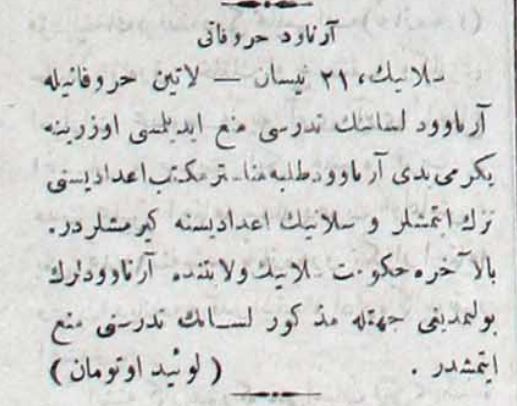 آرناود حروفاتی
سلانیك، ۲۱ نیسان — لاتین حروفاتیله
آرناوود لسانك تدرسی منع ایدیلمسی اوزرینه
یكرمی یدی آرناوود طلبه مناستر مكتب اعدادیسنی
ترك ایتمشلر و سلانیك اعدادیسنه كیرمشلردر.
بالآخره حكومت سلانیك ولایتنده آرناوودلرك
بولمدیغی جهتله مذكور لسانك تدرسنی منع
ایتمشدر . (لوئید اوتومان)